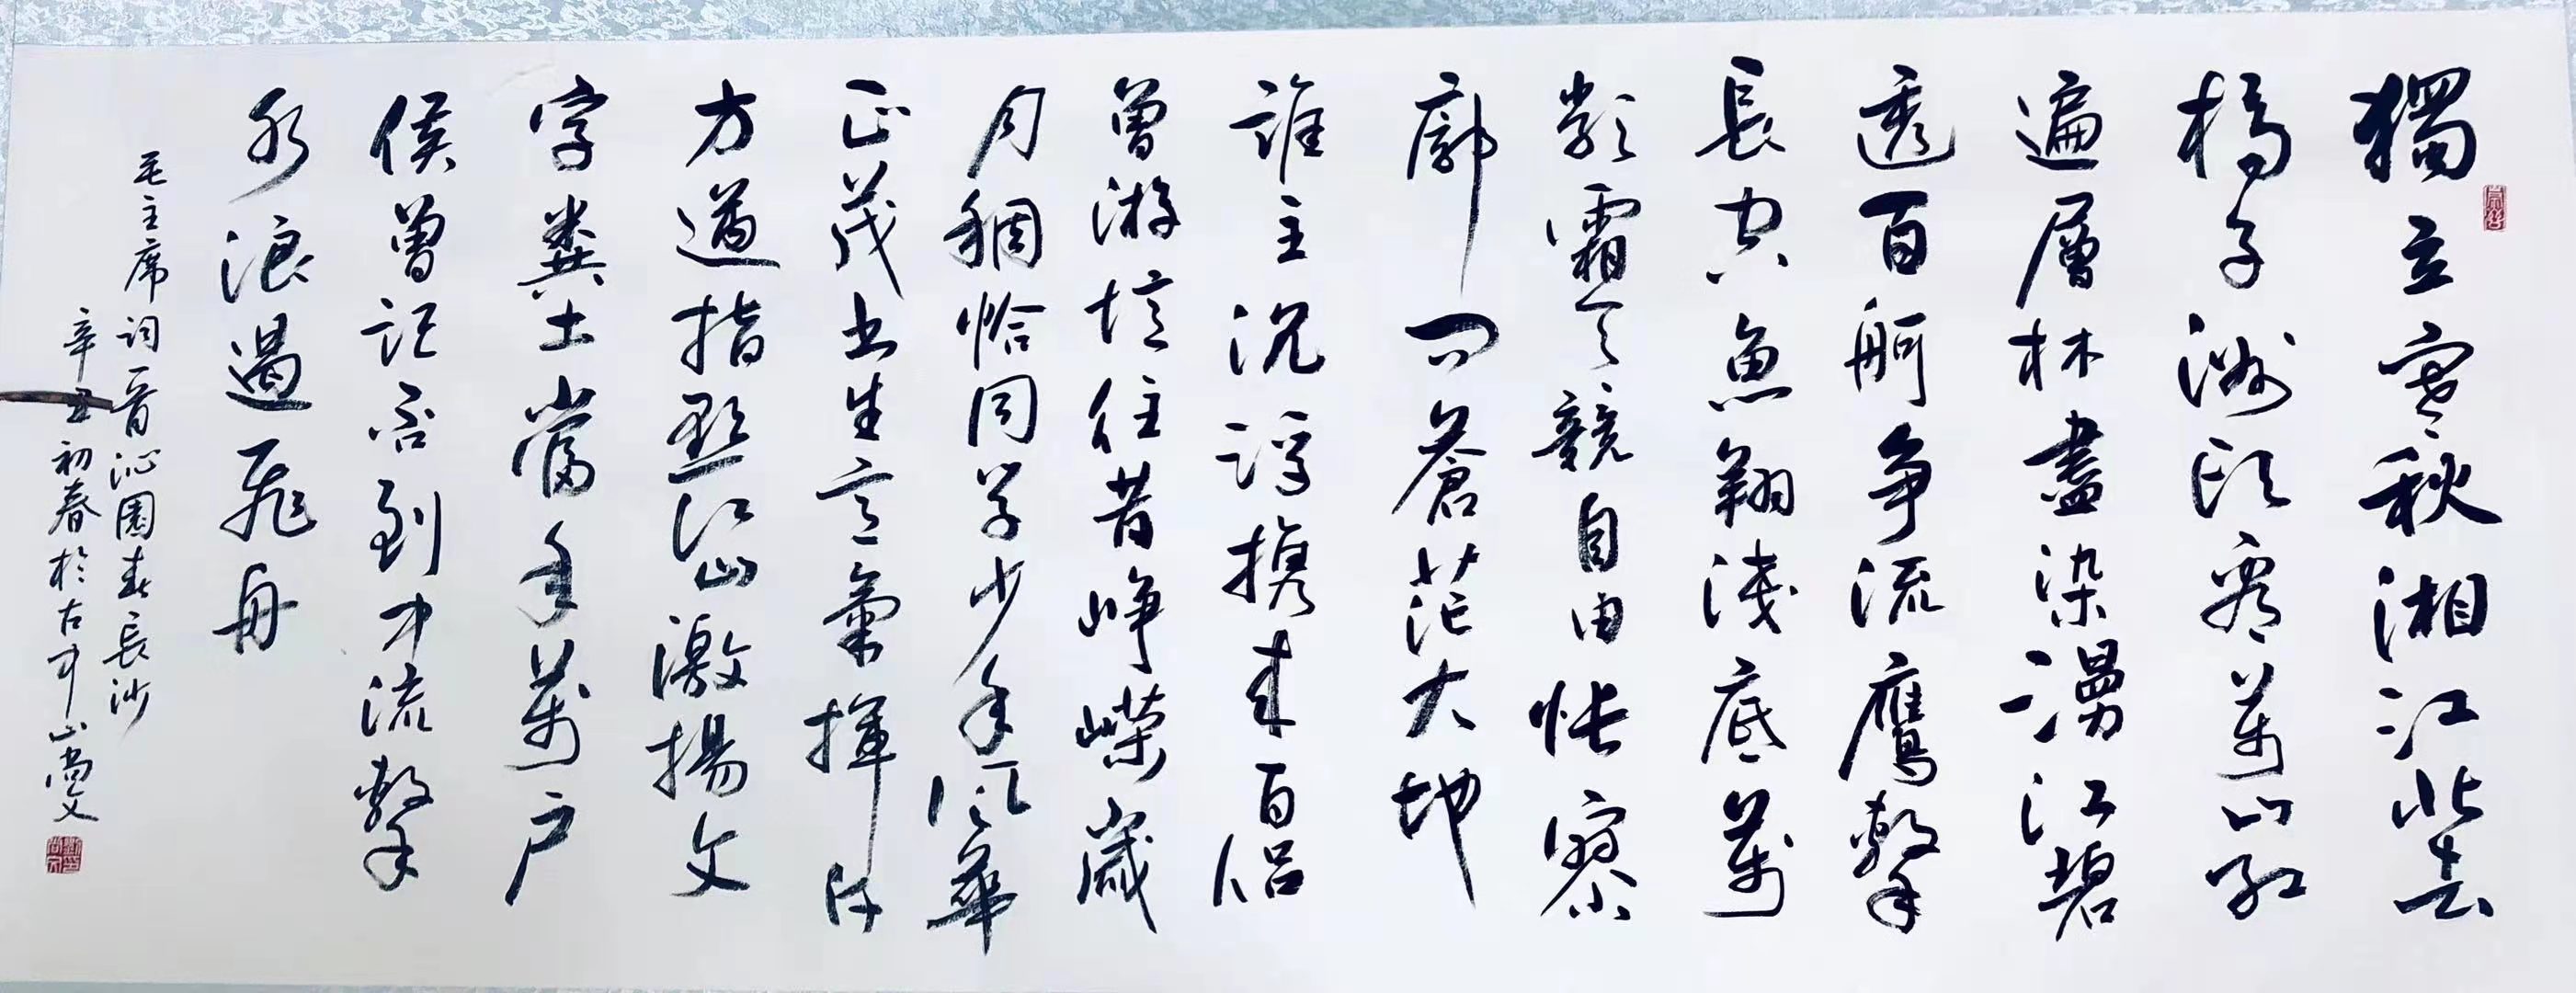 獨立寒秋湘江北去
橘子洲頭看萬山紅
遍層林盡染漫江碧
透百舸争流鷹擊
長空魚翔淺底萬
類霜天競自由悵寥
廓問蒼茫大地
誰主沉浮携来百侣
曾游憶往昔崢嶸歲
月稠恰同学少年風華
正茂书生意氣揮斥
方遒指點江山激揚文
字糞土當年萬户
侯曾记否到中流擊
水浪遏飛舟
毛主席词一首沁園春長沙
辛丑初春於古中山尚文